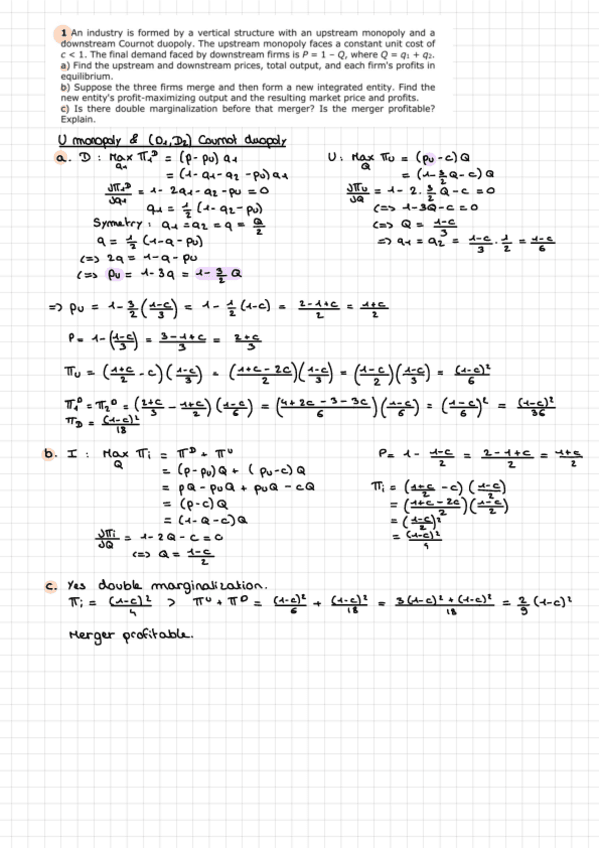 1 An industry is formed by a vertical structure with an upstream monopoly and a
downstream Cournot duopoly. The upstream monopoly faces a constant unit cost of
c < 1. The final demand faced by downstream firms is P = 1 – Q, where Q = q₁ + q₂.
a) Find the upstream and downstream prices, total output, and each firm's profits in
equilibrium.
b) Suppose the three firms merge and then form a new integrated entity. Find the
new entity's profit-maximizing output and the resulting market price and profits.
c) Is there double marginalization before that merger? Is the merger profitable?
Explain.
U monopoly & (D₁,D₂) Cournot duopoly
a. D : Max_q₁ Π₁ᴰ = (p- pu) q₁
= (1-q₁-q₂-pu)q₁
∂Π₁ᴰ/∂q₁ = 1- 2q₁-q₂-pu = 0
q₁ = 1/2 (1-q₂-pu)
Symetry : q₁ = q₂ = q = Q/2
q = 1/2 (1-q-pu)
(=) 2q = 1-q-pu
(=> pu = 1-3q = 1- 3/2 Q
U : Max_Q Πu = (pu-c)Q
= (1-3/2Q-c)Q
∂Πu/∂Q = 1- 2. 3/2 Q-c = 0
(=> 1-3Q-c = 0
(=> Q = (1-c)/3
=> q₁ = q₂ = (1-c)/3 . 1/2 = (1-c)/6
=> pu = 1- 3/2 ((1-c)/3) = 1 - 1/2 (1-c) = (2-1+c)/2 = (1+c)/2
P = 1-((1-c)/3) = (3-1+c)/3 = (2+c)/3
Πu = ((1+c)/2 - c)((1-c)/3) = ((1+c-2c)/2)((1-c)/3) = ((1-c)/2)((1-c)/3) = (1-c)²/6
Π₁ᴰ = Π₂ᴰ = ((2+c)/3 - (1+c)/2)((1-c)/6) = ((4+2c-3-3c)/6)((1-c)/6) = ((1-c)/6)² = (1-c)²/36
Π_D = (1-c)²/18
b. I : Max_Q Πi = Πᴰ + Πᵁ
= (p-pu)Q + (pu-c)Q
= pQ - puQ + puQ - cQ
= (p-c)Q
= (1-Q-c)Q
∂Πi/∂Q = 1-2Q-c=0
(=> Q = (1-c)/2
P= 1- (1-c)/2 = (2-1+c)/2 = (1+c)/2
Πi = ((1+c)/2 -c) ((1-c)/2)
= ((1+c-2c)/2)((1-c)/2)
= ((1-c)/2)²
= (1-c)²/4
c. Yes double marginalization.
Πi = (1-c)²/4 > Πᵁ + Πᴰ = (1-c)²/6 + (1-c)²/18 = (3(1-c)²+(1-c)²)/18 = 2/9 (1-c)²
Merger profitable.